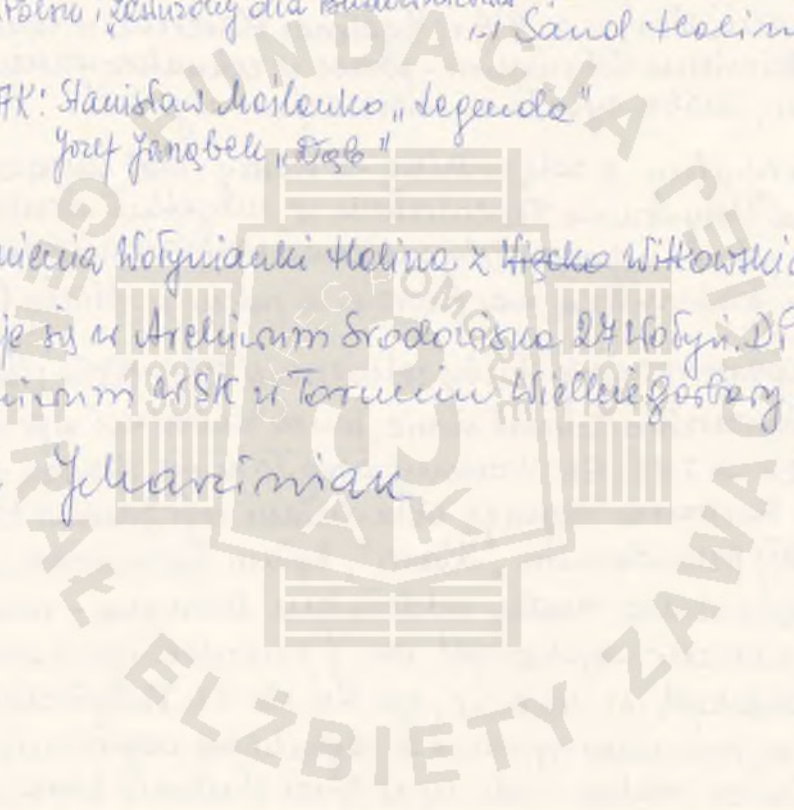 Polski i „Zasłużony dla
(-) Sand Halin
AK: Stanisław Maślanko „Legenda”
Józef Jarząbek „Dąb”
nienia Wołynianki Halina z Hęcka Witkowskie
je są w Archiwum Środowiska 27 Wołyń. D.P
iwum WSK w Toruniu Wielkie Garbary
JMarciniak
FUNDACJA GENERAŁ ELŻBIETY ZAWACKIEJ
OKRĘG POMORZE
1939 1945
AK